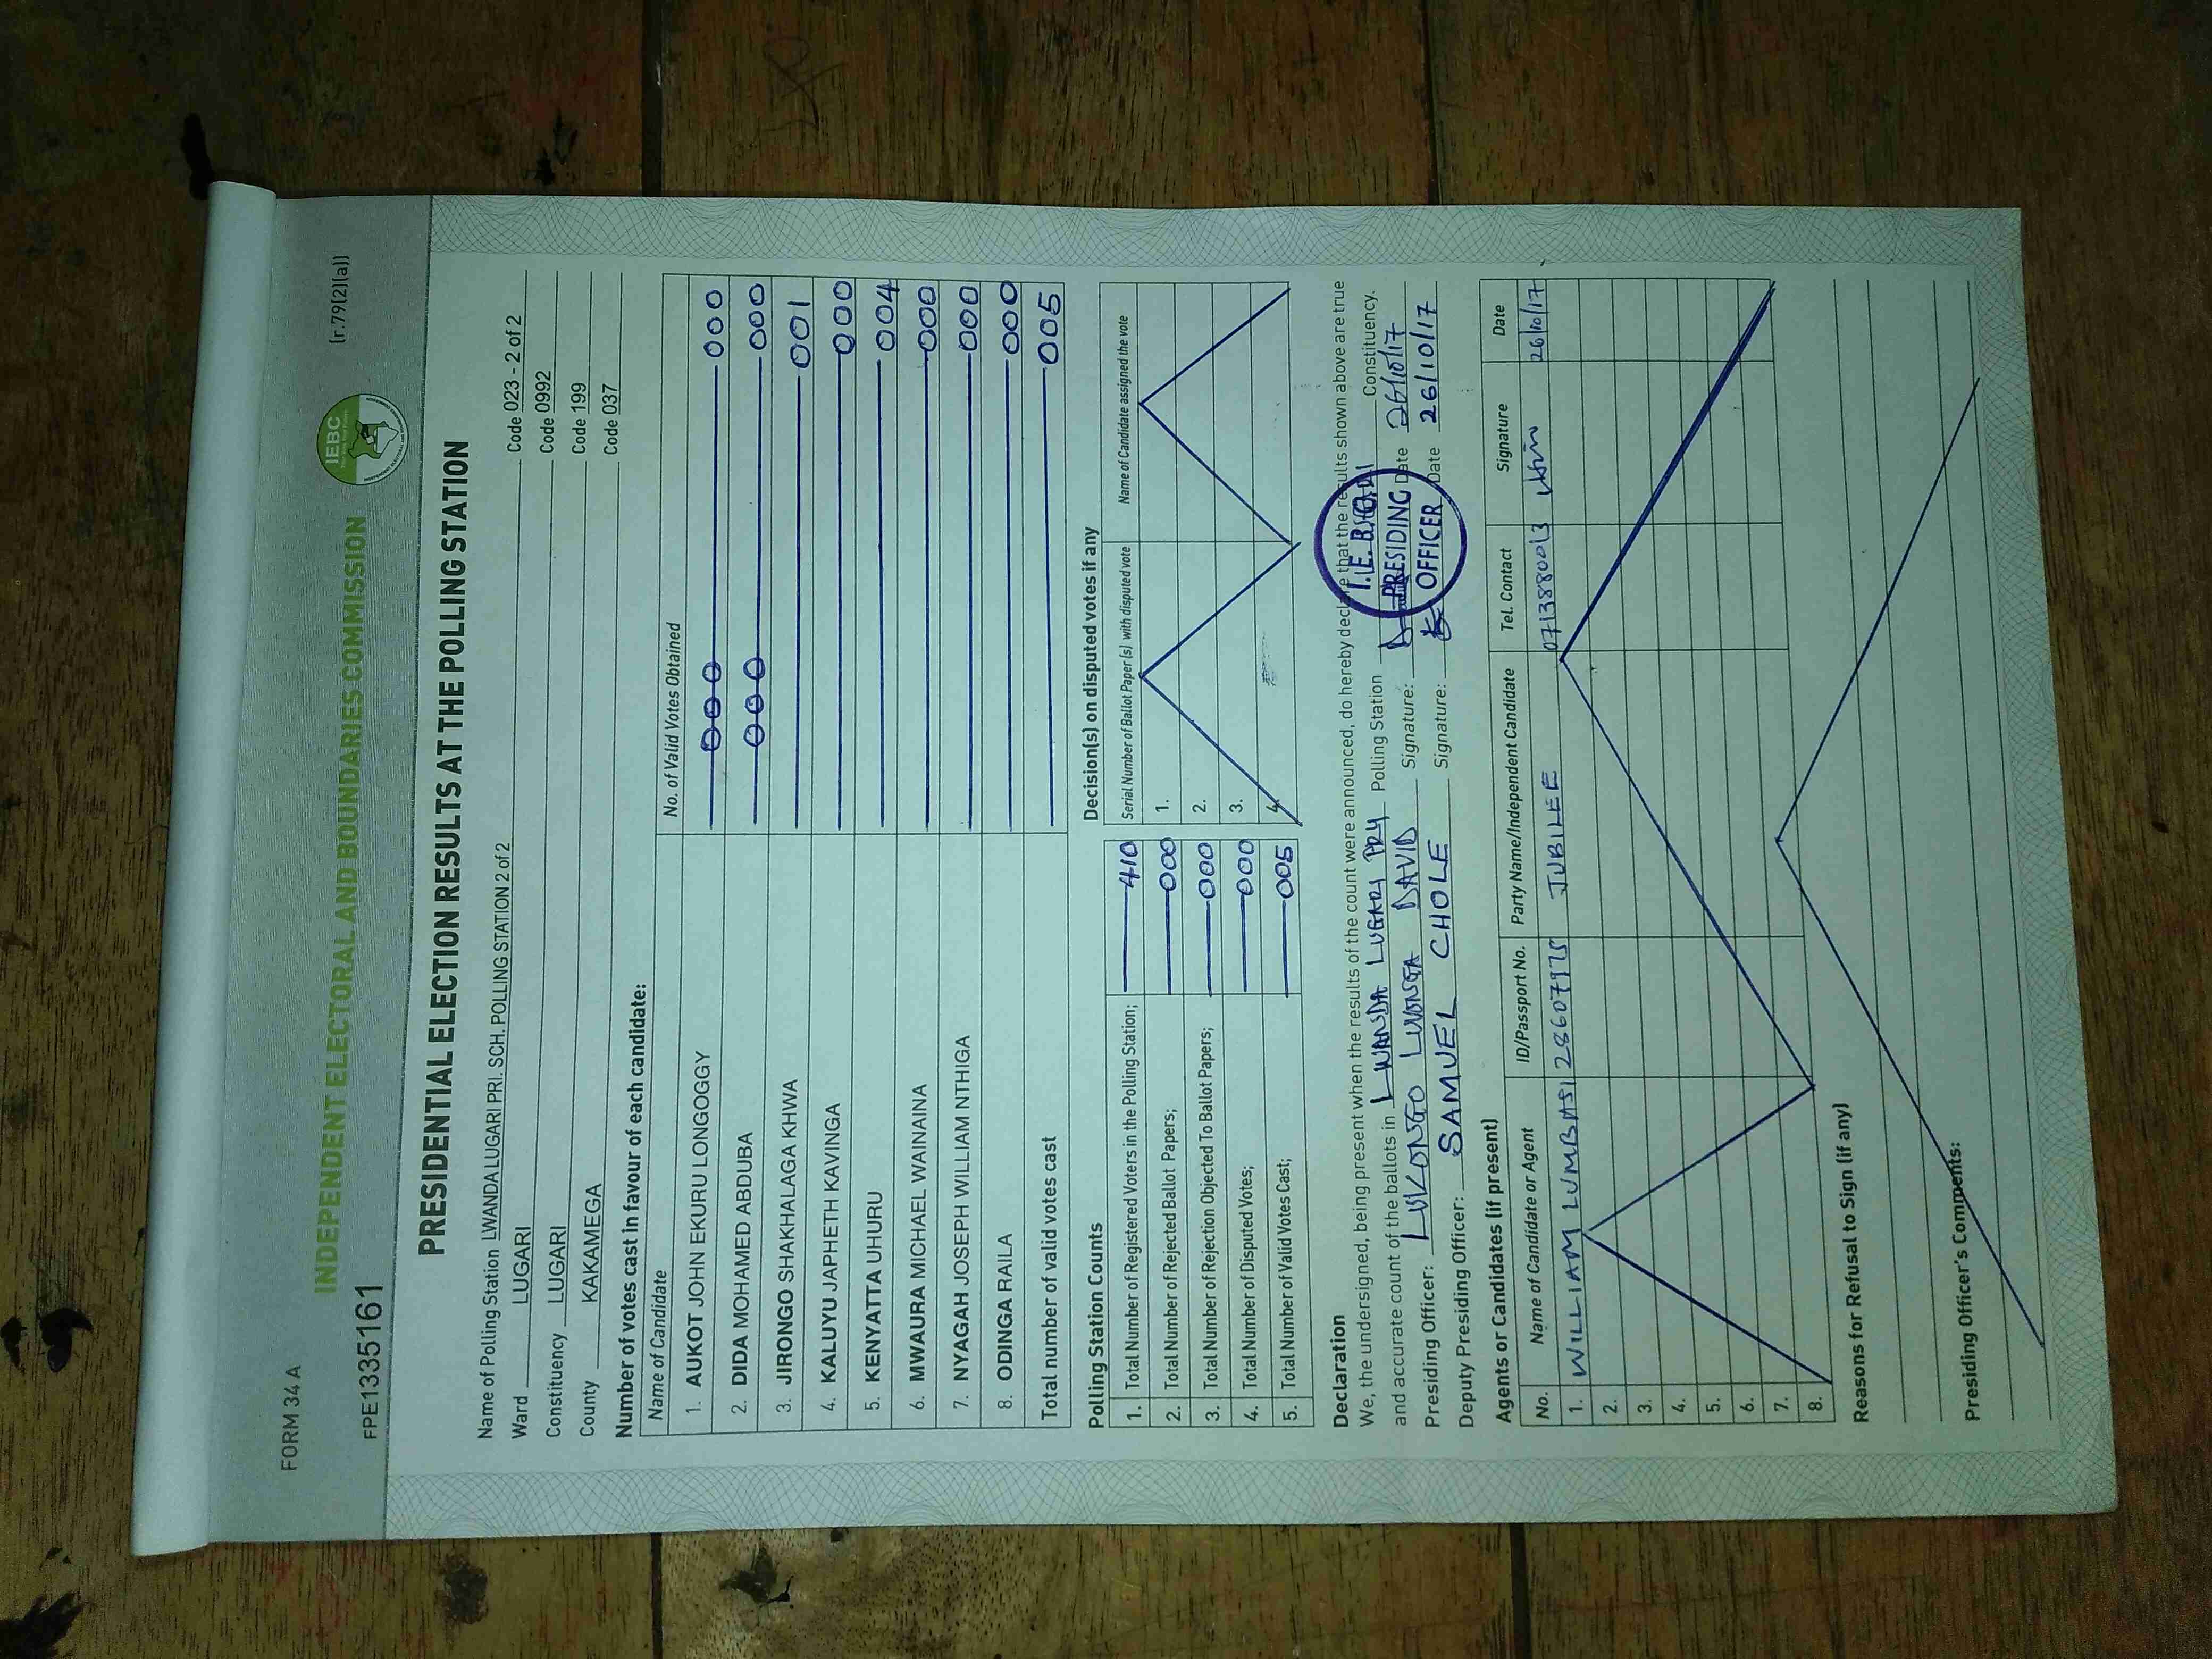 FORM 34 A
(r.79(2)(a))
IEBC
INDEPENDENT ELECTORAL AND BOUNDARIES COMMISSION
FPE1335161
PRESIDENTIAL ELECTION RESULTS AT THE POLLING STATION
Name of Polling Station LWANDA LUGARI PRI. SCH. POLLING STATION 2 of 2 Code 023 - 2 of 2
Ward LUGARI Code 0992
Constituency LUGARI Code 199
County KAKAMEGA Code 037
Number of votes cast in favour of each candidate:
Name of Candidate No. of Valid Votes Obtained
1. AUKOT JOHN EKURU LONGOGGY 000 000
2. DIDA MOHAMED ABDUBA 000 000
3. JIRONGO SHAKHALAGA KHWA 001
4. KALUYU JAPHETH KAVINGA 000
5. KENYATTA UHURU 004
6. MWAURA MICHAEL WAINAINA 000
7. NYAGAH JOSEPH WILLIAM NTHIGA 000
8. ODINGA RAILA 000
Total number of valid votes cast 005
Polling Station Counts
1. Total Number of Registered Voters in the Polling Station; 410
2. Total Number of Rejected Ballot Papers; 000
3. Total Number of Rejection Objected To Ballot Papers; 000
4. Total Number of Disputed Votes; 000
5. Total Number of Valid Votes Cast; 005
Decision(s) on disputed votes if any
Serial Number of Ballot Paper (s) with disputed vote Name of Candidate assigned the vote
1.
2.
3.
4.
Declaration
We, the undersigned, being present when the results of the count were announced, do hereby declare that the results shown above are true
and accurate count of the ballots in LWANDA LUGARI PRY Polling Station Constituency.
Presiding Officer: LUKONGO LUVONGA DAVID Signature: Date 26/10/17
Deputy Presiding Officer: SAMUEL CHOLE Signature: Date 26/10/17
PRESIDING
OFFICER
Agents or Candidates (if present)
No. Name of Candidate or Agent ID/Passport No. Party Name/Independent Candidate Tel. Contact Signature Date
1. WILLIAM LUMBASI JUBILEE 0713880013 26/10/17
2.
3.
4.
5.
6.
7.
8.
Reasons for Refusal to Sign (if any)
Presiding Officer's Comments: